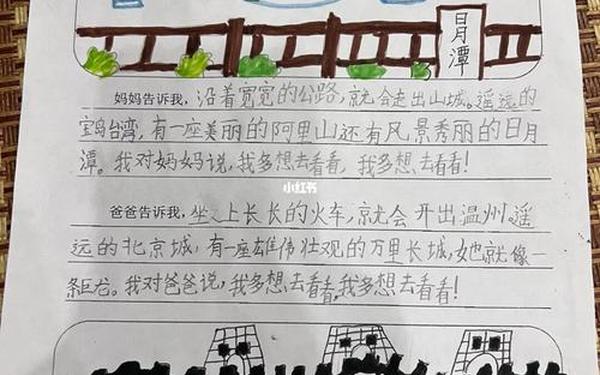 日月潭
妈妈告诉我，沿着宽宽的公路，就会走出山城。遥远的
宝岛台湾，有一座美丽的阿里山还有风景秀丽的日月
潭。我对妈妈说，我多想去看看，我多想去看看！
小红书
爸爸告诉我，坐上长长的火车，就会开出温州，遥
远的北京城，有一座雄伟壮观的万里长城，她就像一
条巨龙。我对爸爸说，我多想去看看，我多想去看看！